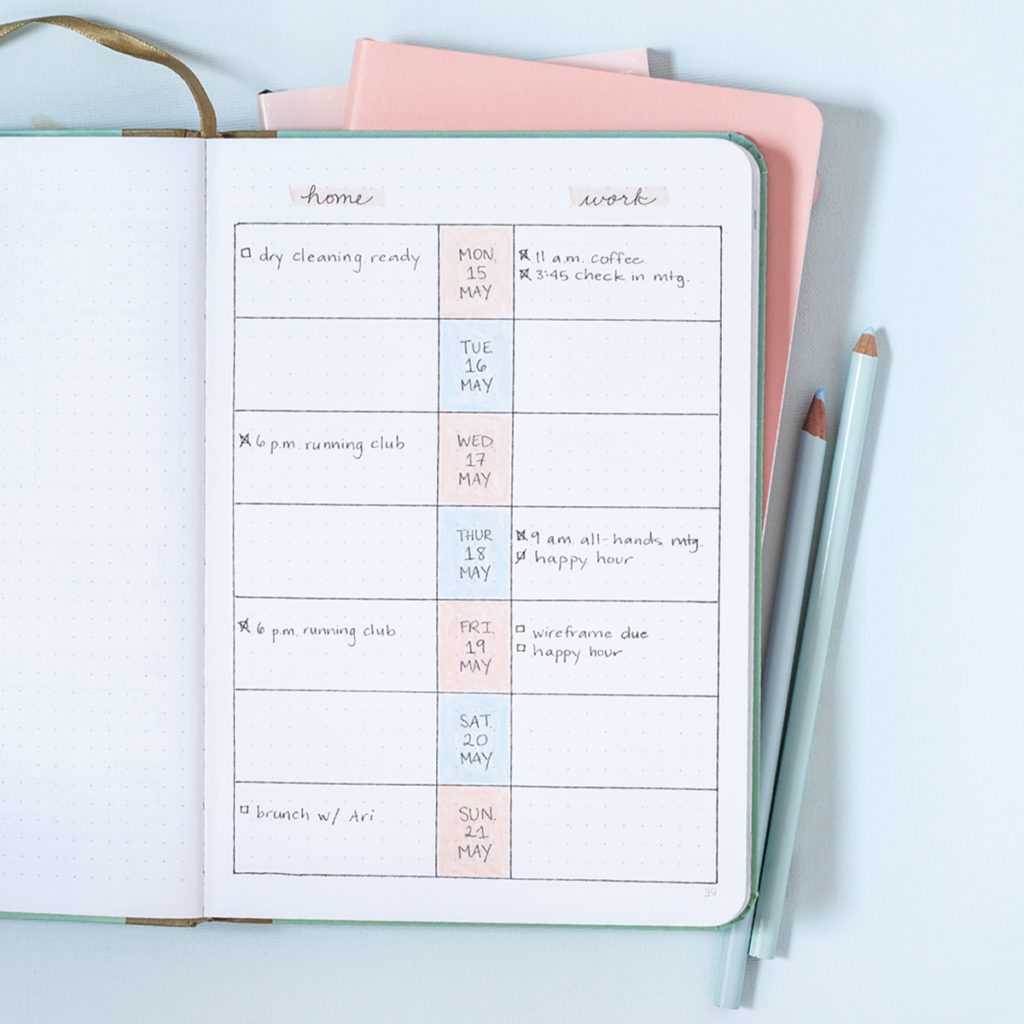 home work
dry cleaning ready
MON.
15
MAY
11 a.m. coffee
3:45 check in mtg.
TUE
16
MAY
6 p.m. running club
WED.
17
MAY
THUR
18
MAY
9 am all-hands mtg.
happy hour
6 p.m. running club
FRI.
19
MAY
wireframe due
happy hour
SAT.
20
MAY
brunch w/ Ari
SUN.
21
MAY
39